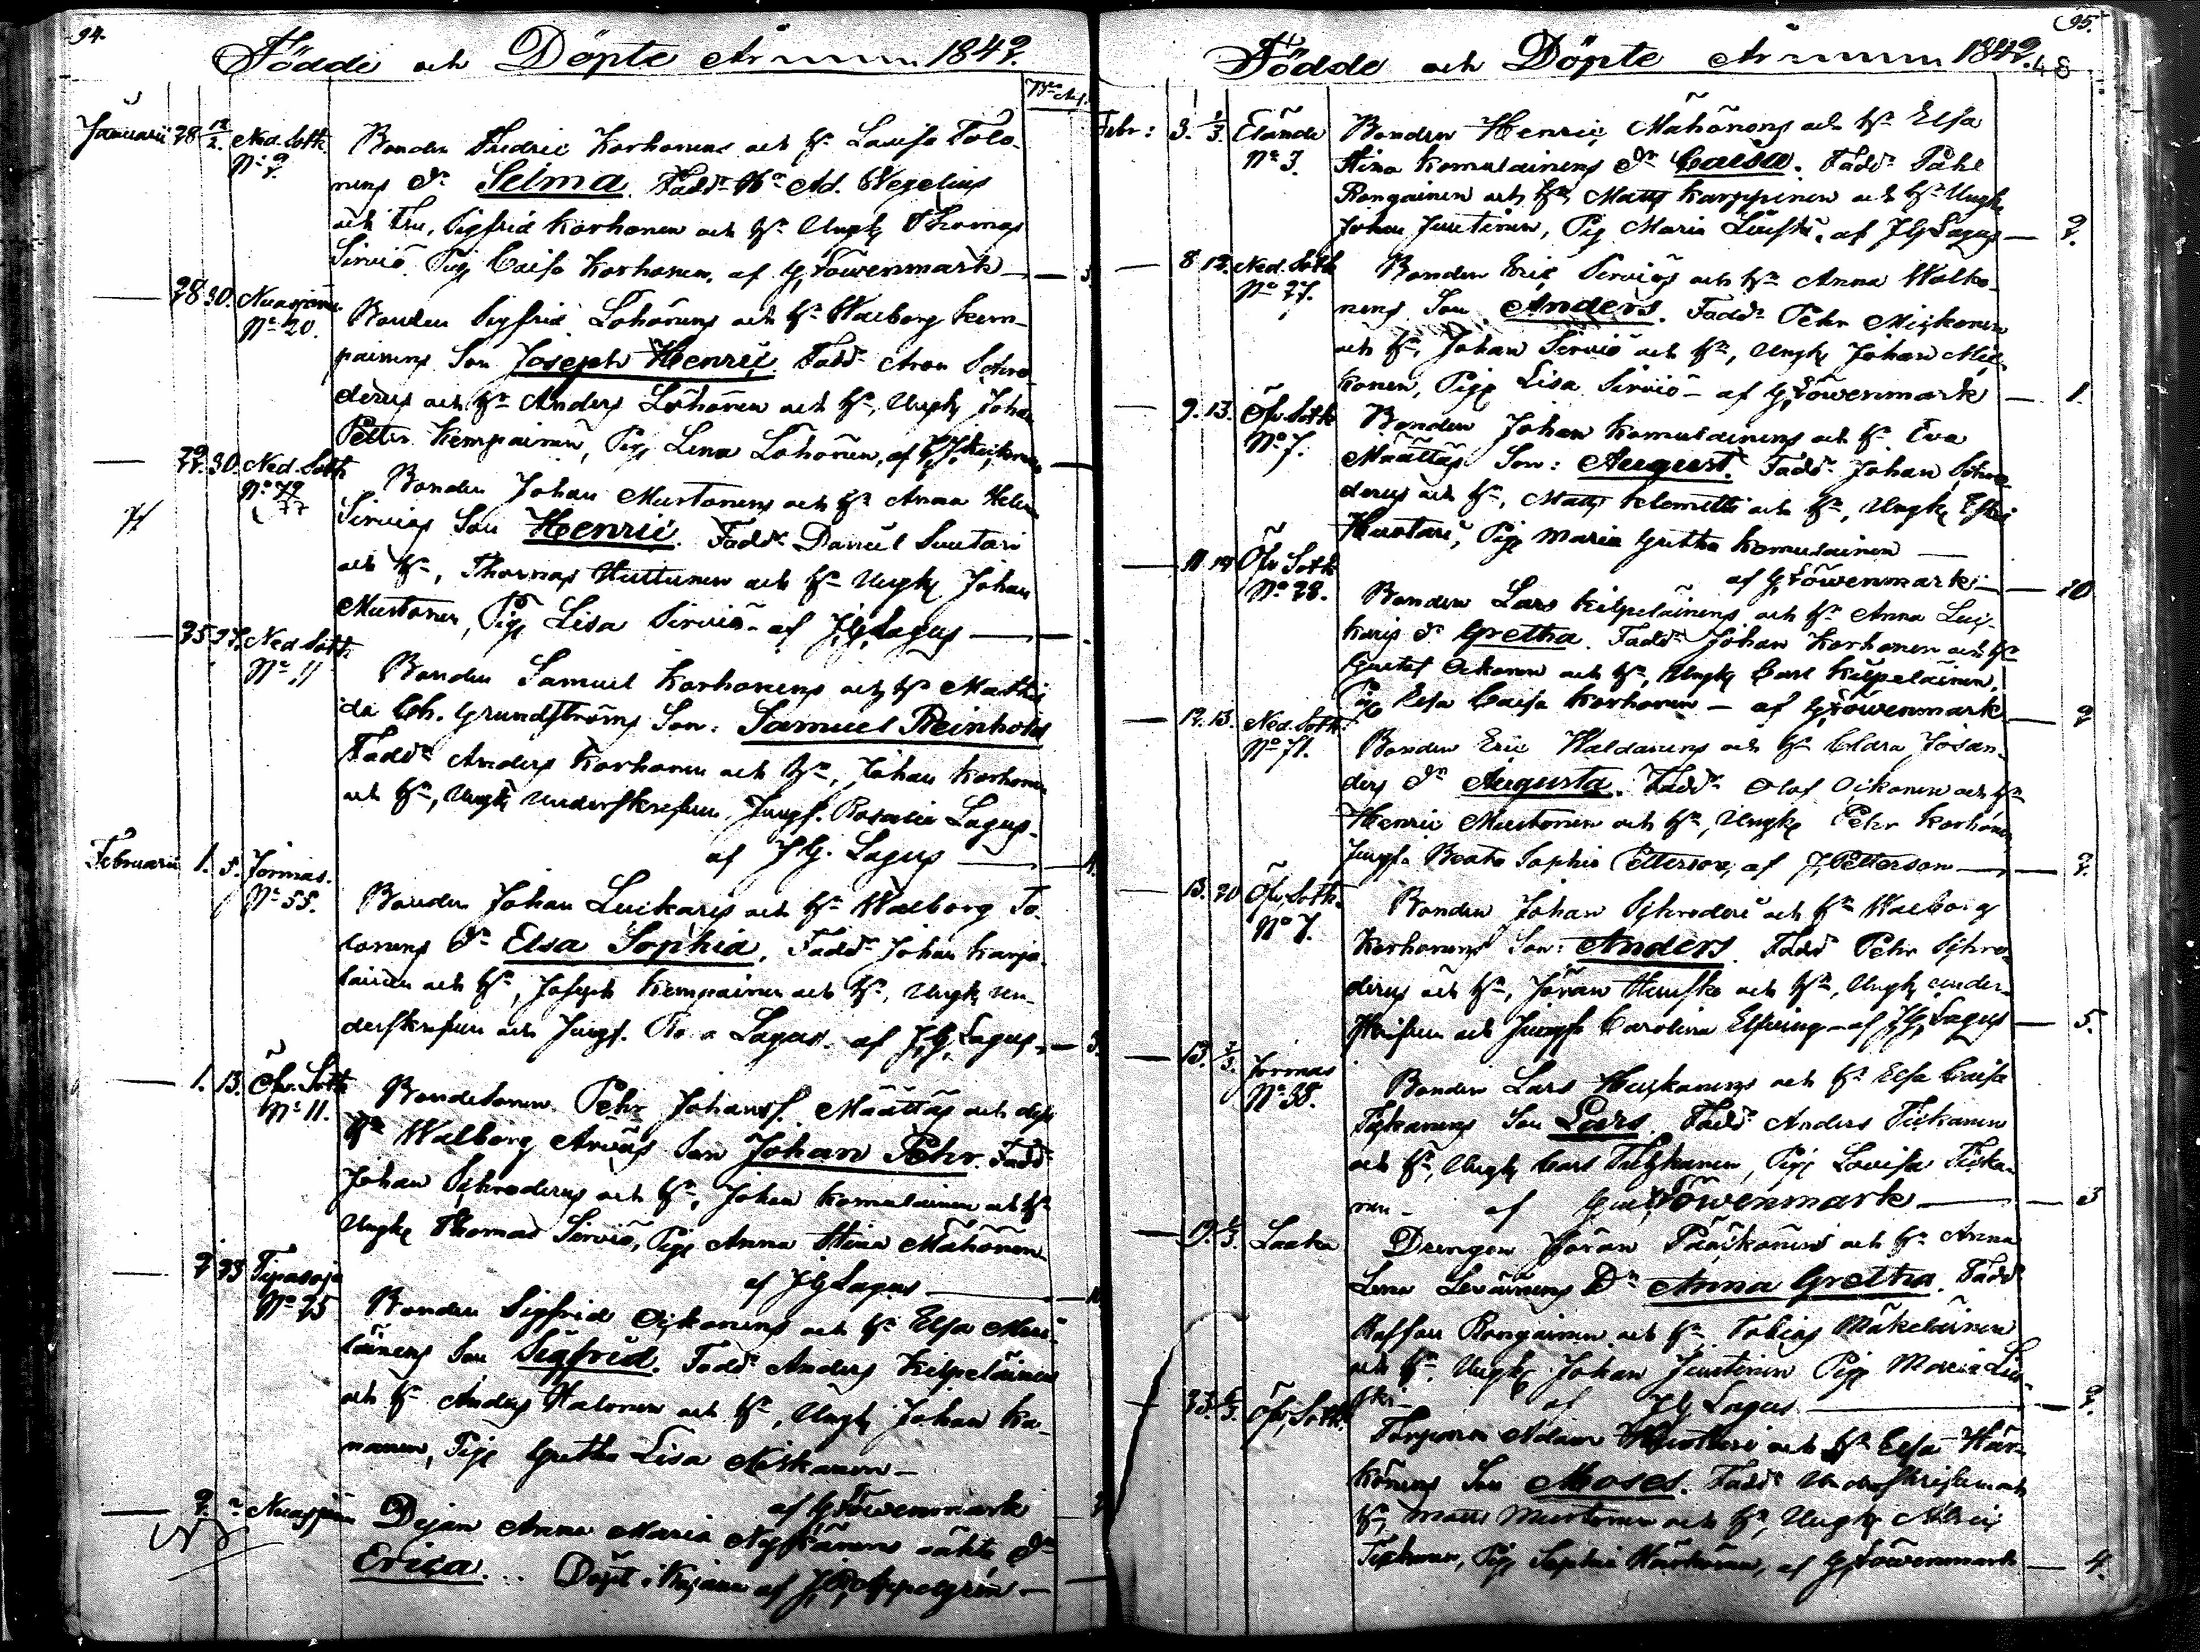 94.
Födde och Döpte År 1842.
Januarii 28 12/2. Ned. Sotk. N:o 2. Bonden Fredric Korhonens och H:u Lovisa Tolo-
nens D:r Selma. Fadd:r H:r Ad. Wegelius
och Fru, Sigfrid Korhonen och H:u Ungk Thomas
Sirviö Pig Caisa Korhonen. af G Löwenmark
28 30. Nuasjärvi N:o 20. Bonden Sigfrid Lohönens och H:u Walborg Kem-
painens Son Joseph Henric. Fadd: Aron Schro-
derus och H:u Anders Lohönen och H:u, Ungk Johan
Petter Kempainen, Pig Lena Lohönen, af
29. 30. Ned. Sotk N:o 72 Bonden Johan Mustonens och H:u Anna Helena
Sirviös Son Henric. Fadd:r Daniel Suutari
och H:u, Thomas Huttunen och H:u Ungk Johan
Mustonen, Pig Lisa Sirviö - af J.G. Lagus
25. 27. Ned. Sotk. N:o 11 Bonden Samuel Korhonens och H:u Mathil-
da Ch. Grundströms Son: Samuel Reinhold
Fadd:r Anders Korhonen och H:u, Johan Korhonen
och H:u, Ungk Underskrefven Jungf. Rosalie Lagus.
af J.G. Lagus 4.
Februarii 1. 5. Jormas. N:o 55. Bonden Johan Luikaris och H:u Walborg To-
lonens D:r Elsa Sophia. Fadd:r Johan Karja-
lainen och H:u, Joseph Kempainen och H:u, Ungk Un-
derskrefven och Jungf. Ro a Lagus. af J.G. Lagus 3.
1. 13. Öfv. Sotk N:o 11. Bondesonen Pehr Johanss. Määttäs och dess
H:u Walborg Arvas Son Johan Pehr. Fadd:
Johan Schroderus och H:u, Johan Komulainen och H:u
Ungk Thomas Sirviö, Pig Anna Stina Mähönen
af J G Lagus
2 25 Tipasoja N:o 25 Bonden Sigfrid Oikonens och H:u Elsa Meri-
läinens Son Sigfrid. Fadd:r Anders Kilpeläinen
och H:u Anders Halonen och H:u, Ungk Johan Ka-
nanen, Pig Gretha Lisa Niskanen
af G Löwenmark
2. Nuasjärvi Dejan Anna Maria Nyskänens oäkta D:r
Erica. Döpt i Kajana af J. R. Appelgren
95.
48
Födde och Döpte År 1842.
Febr: 3. 2/3 Erände N:o 3. Bonden Henric Mähönens och H:u Elsa
Stina Komulainens D:r Caisa. Fadd:r Påhl
Rongainen och H:u Matts Karppinen och H:u Ungk
Johan Juntinen, Pig Maria Liuski. af J G Lagus 2.
8 12. Ned. Sotk N:o 27. Bonden Eric Sirviös och H:u Anna Walko-
nens Son Anders. Fadd:r Pehr Mickonen
och H:u, Johan Sirviö och H:u, Ungk Johan Mic-
konen, Pig Lisa Sirviö - af G Löwenmark 1.
9. 13. Öfv. Sotk N:o 7. Bonden Johan Komulainens och H:u Eva
Määttäs Son: August. Fadd:r Johan Schro-
derus och H:u, Matts Klemetti och H:u, Ungk
Huotari, Pig Maria Gretha Komulainen
af G Löwenmark 10
11 14 Öfv. Sotk N:o 28. Bonden Lars Kilpeläinens och H:u Anna Lui-
karis D:r Gretha. Fadd:r Johan Korhonen och H:u
Gustaf Oikonen och H:u, Ungk Carl Kilpeläinen,
Pig Elsa Caisa Korhonen - af G Löwenmark 2
12. 13. Ned. Sotk. N:o 71. Bonden Eric Haldanens och H:u Clara Josan-
ders D:r Augusta. Fadd:r Olof Oikonen och H:u
Henric Mustonen och H:u, Ungk Pehr Korhonen
Jungf. Beata Sophia Petterson, af J Petterson 2.
13. 20 Öfv. Sotk. N:o 7. Bonden Johan Schroderi och H:u Walborg
Korhonens Son: Anders. Fadd:r Pehr Schro-
derus och H:u, Jöran Heusko och H:u, Ungk under-
skrifven och Jungf. Carolina Elfving - af J G Lagus 5.
13. 2/3 Jormas N:o 38. Bonden Lars Huskonens och H:u Elsa Caisa
Tickanens Son Lars. Fadd:r Anders Tickanen
och H:u, Ungk Carl Tickanen, Pig Lovisa Ticka-
nen - af Gust Löwenmark 3
19. 6/3. Laaka Drengen Jöran Pääskönens och H:u Anna
Lena Leväinens D:r Anna Gretha. Fadd:r
Staffan Rongainen och H:u Tobias Mäkeläinen
och H:u Ungk Johan Juntinen Pig Maria Liu-
ski - af J G Lagus 2.
23. 6/3. Öfv. Sotk. Torparen Adam Huotari och H:u Elsa Här-
könens Son Moses. Fadd:r Underskrifven och
H:u, Matts Mustonen och H:u, Ungk
Tickanen, Pig Sophia Härkönen, af G Löwenmark 4.